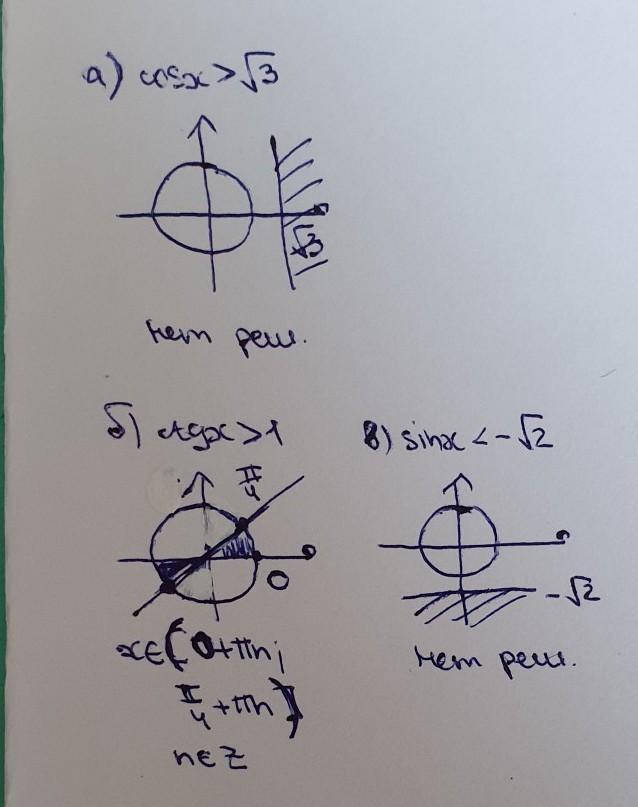 а) cosx > √3
√3
нет реш.
б) ctgx > 1
π/4
0
x∈(0+πn;
π/4+πn)
n∈Z
в) sinx < -√2
-√2
нет реш.